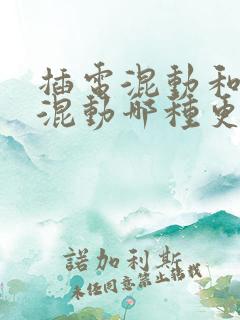 插電混動和
混動哪種更
諾加利斯
未任同意禁止转载